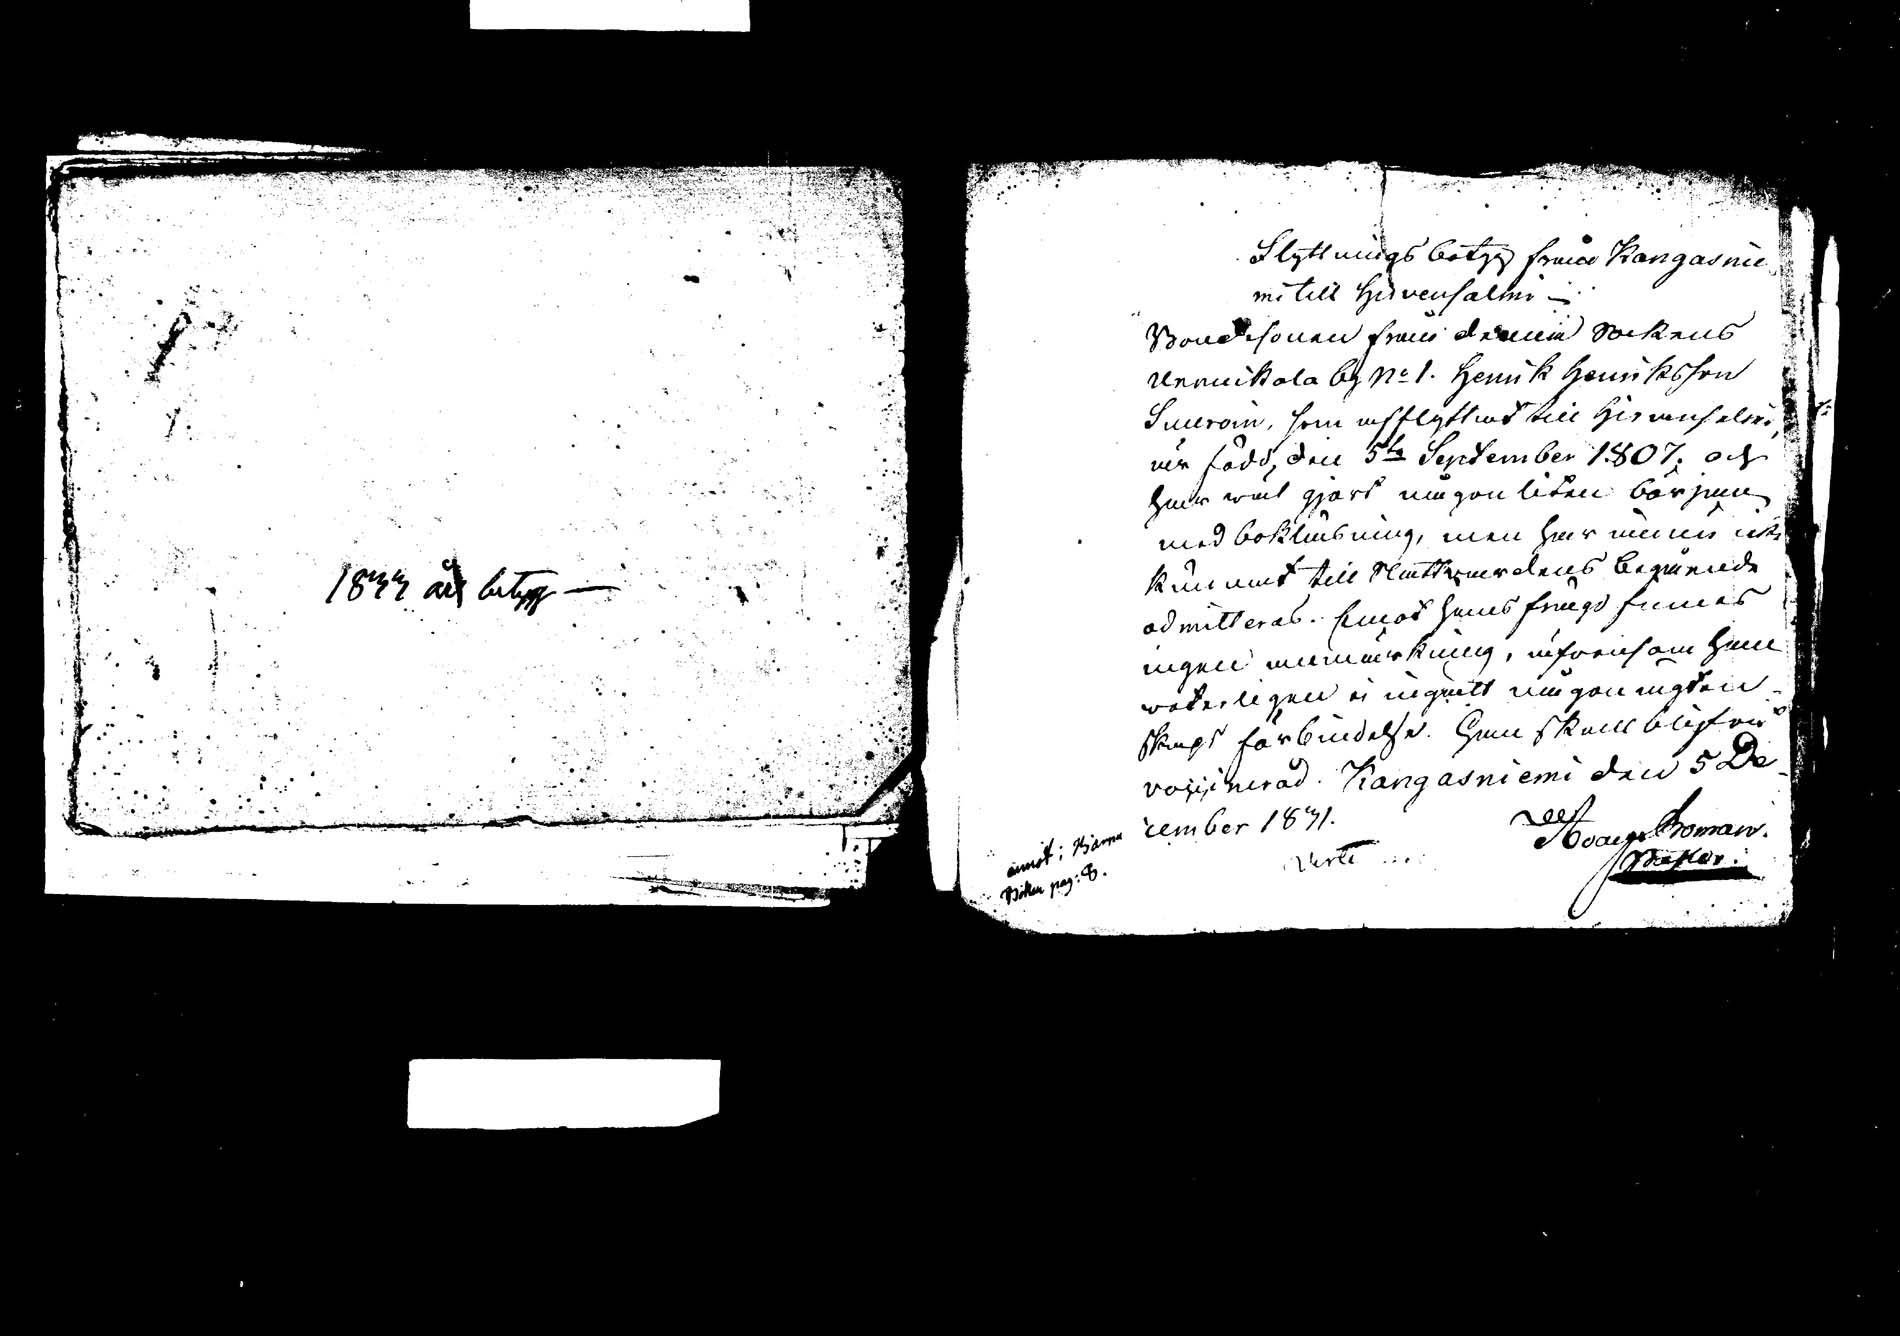 1844 års betyg —
Flyttnings betyg från Kangasnie
mi till Hirvensalmi —
Bondesonen från denna Sockens
by No 1. Henrik Henriksson
som afflyttat till Hirvensalmi,
är född, den 5te September 1807. och
har wäl gjort någon liten början
med bokläsning, men har ännu icke
kunnat till Nattwardens begående
admitteras. Emot hans frägd finnes
ingen anmärkning, äfvensom han
veterligen ej ingått någon ägten-
skaps förbindelse. Han skall blifvit
vaccinerad. Kangasniemi den 5 De-
cember 1841.
Boman.
Pastor.
Verte
annot: i Barne
Boken pag: 8.